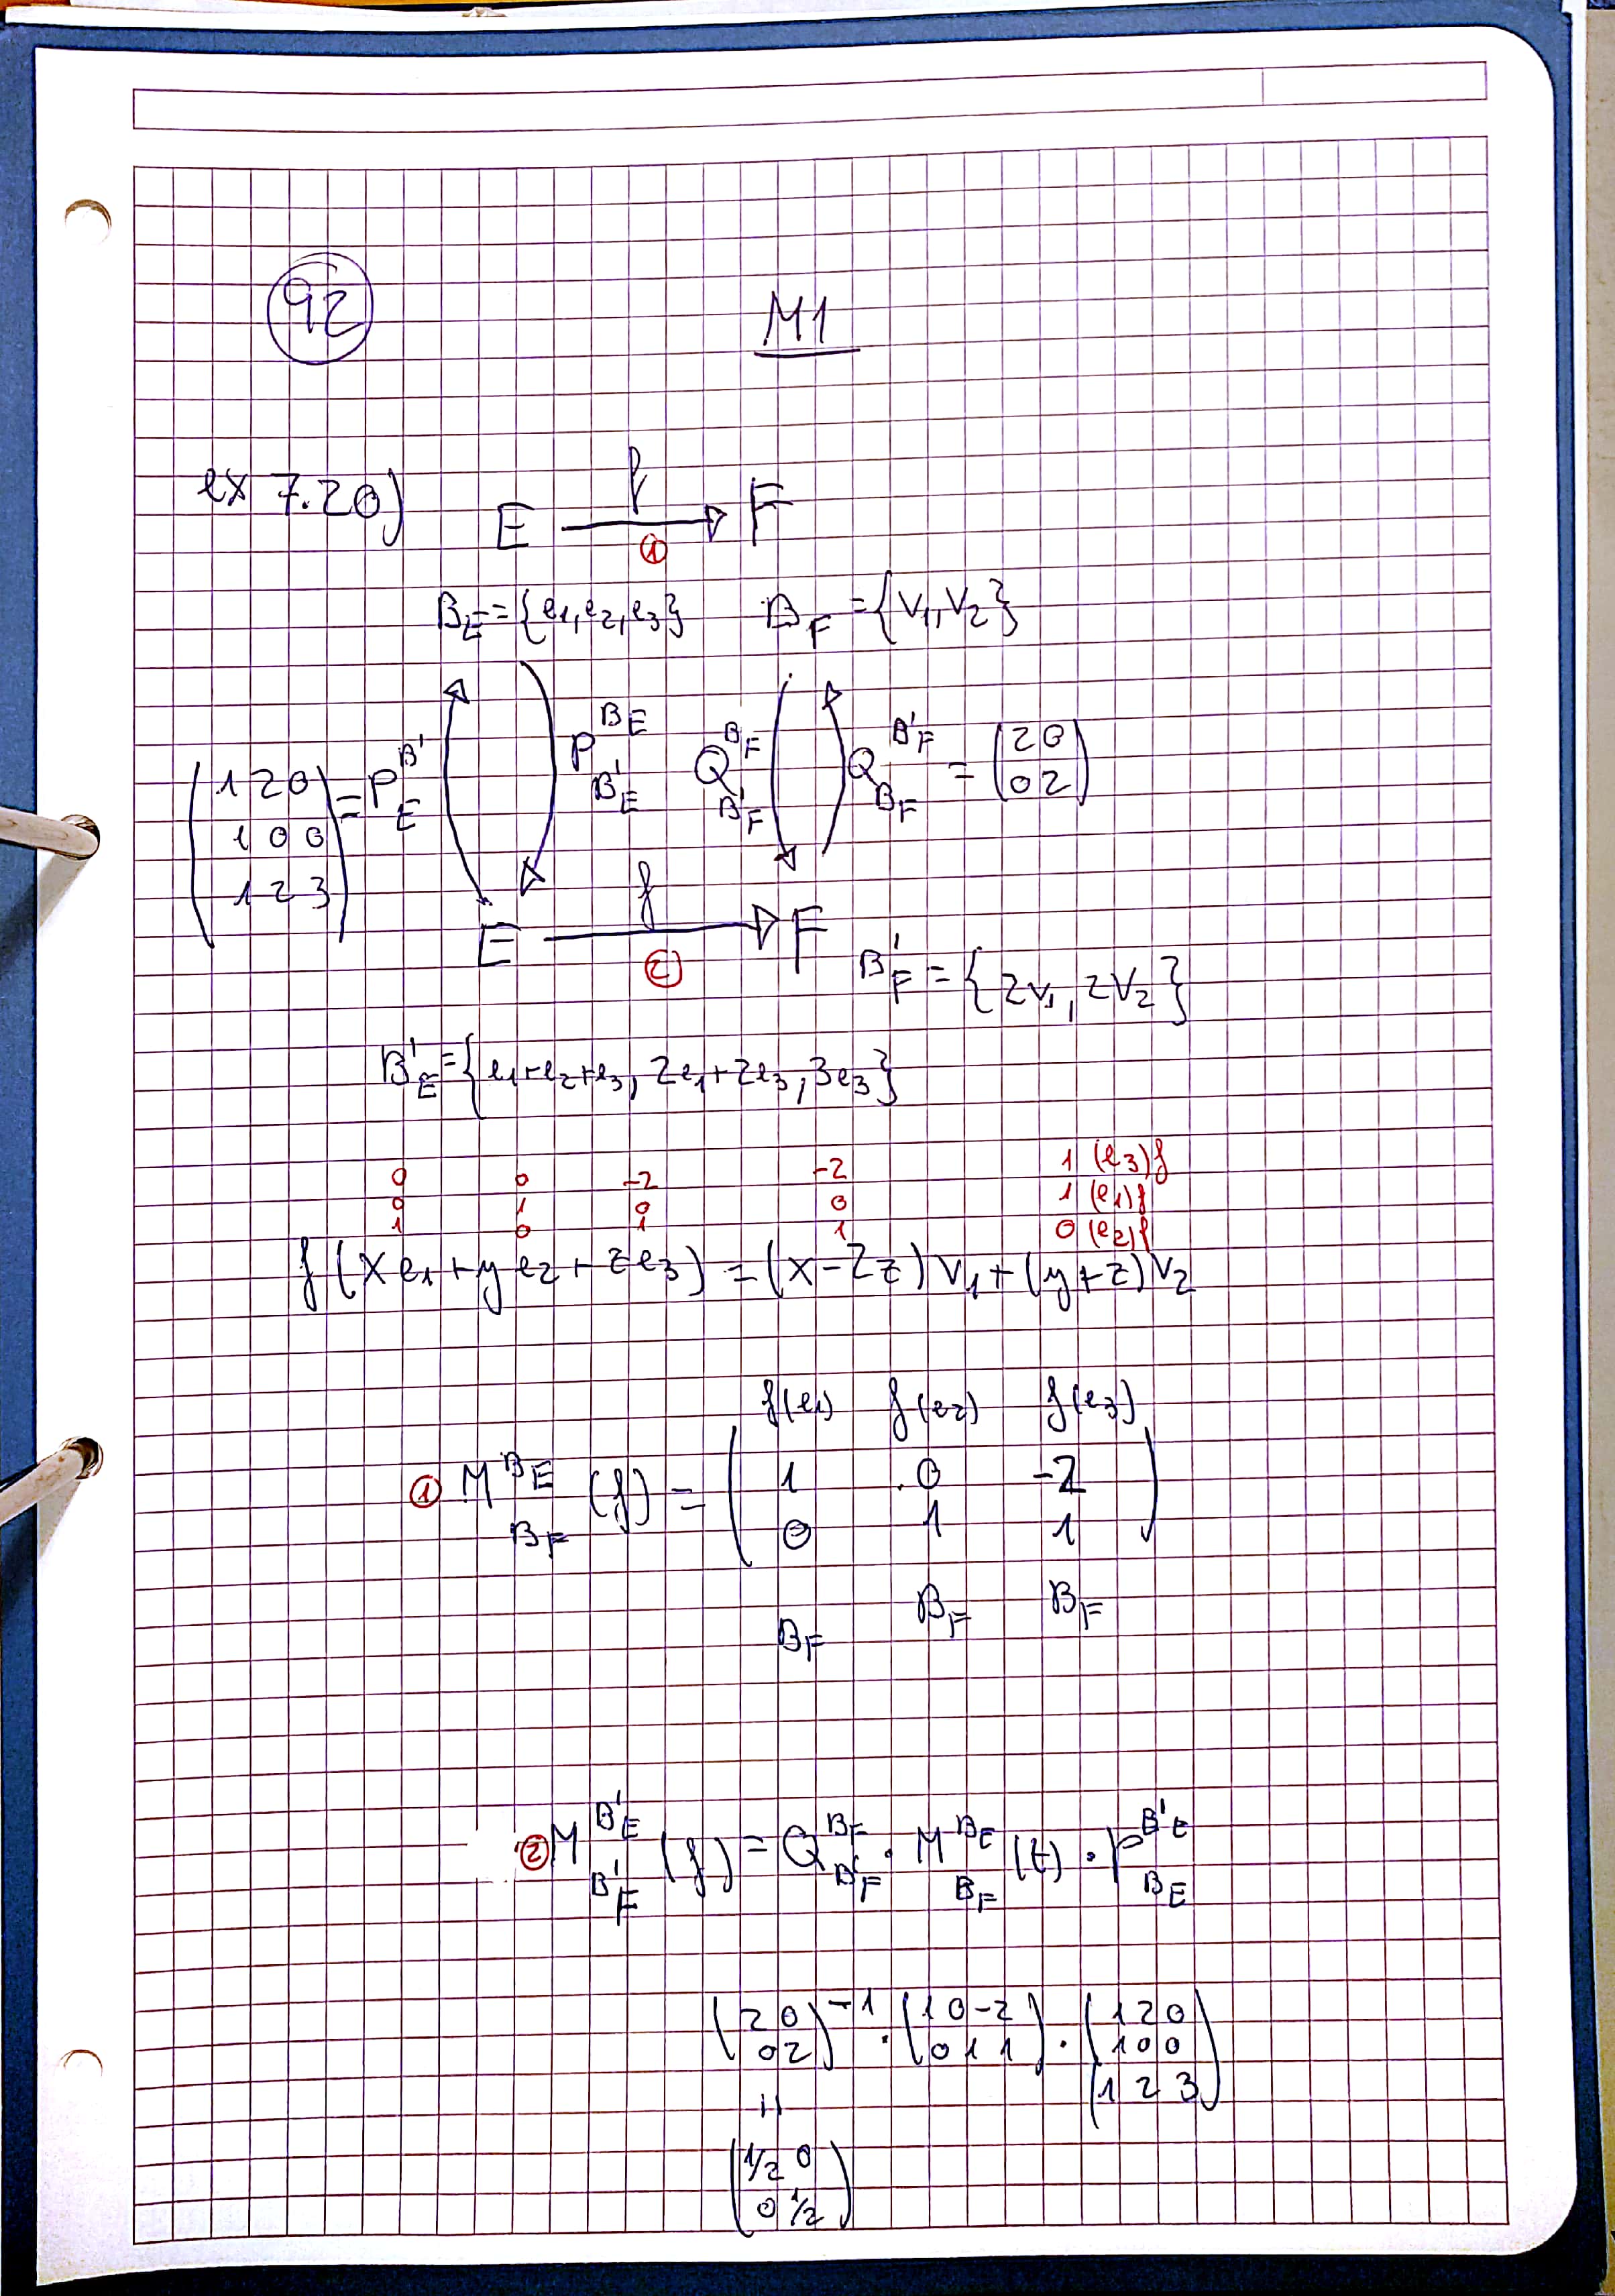 92
M1
ex 7.20)
f
E → F
①
B_E = {e1, e2, e3} B_F = {v1, v2}
(1 2 0 / 1 0 0 / 1 2 3) = P^{B'}_E P^{B_E}_{B'_E} Q^{B_F}_{B'_F} Q^{B'_F}_{B_F} = (2 0 / 0 2)
f
E → F
②
B'_F = {2v1, 2v2}
B'_E = {e1+e2+e3, 2e1+2e3, 3e3}
0 0 -2 -2 1 (e3)f
0 1 0 0 1 (e1)f
1 0 1 1 0 (e2)f
f(xe1+ye2+ze3) = (x-2z)v1+(y+z)v2
f(e1) f(e2) f(e3)
① M^{B_E}_{B_F}(f) = (1 0 -2 / 0 1 1)
B_F B_F B_F
② M^{B'_E}_{B'_F}(f) = Q^{B_F}_{B'_F} · M^{B_E}_{B_F}(f) · P^{B'_E}_{B_E}
(2 0 / 0 2)^{-1} · (1 0 -2 / 0 1 1) · (1 2 0 / 1 0 0 / 1 2 3)
=
(1/2 0 / 0 1/2)